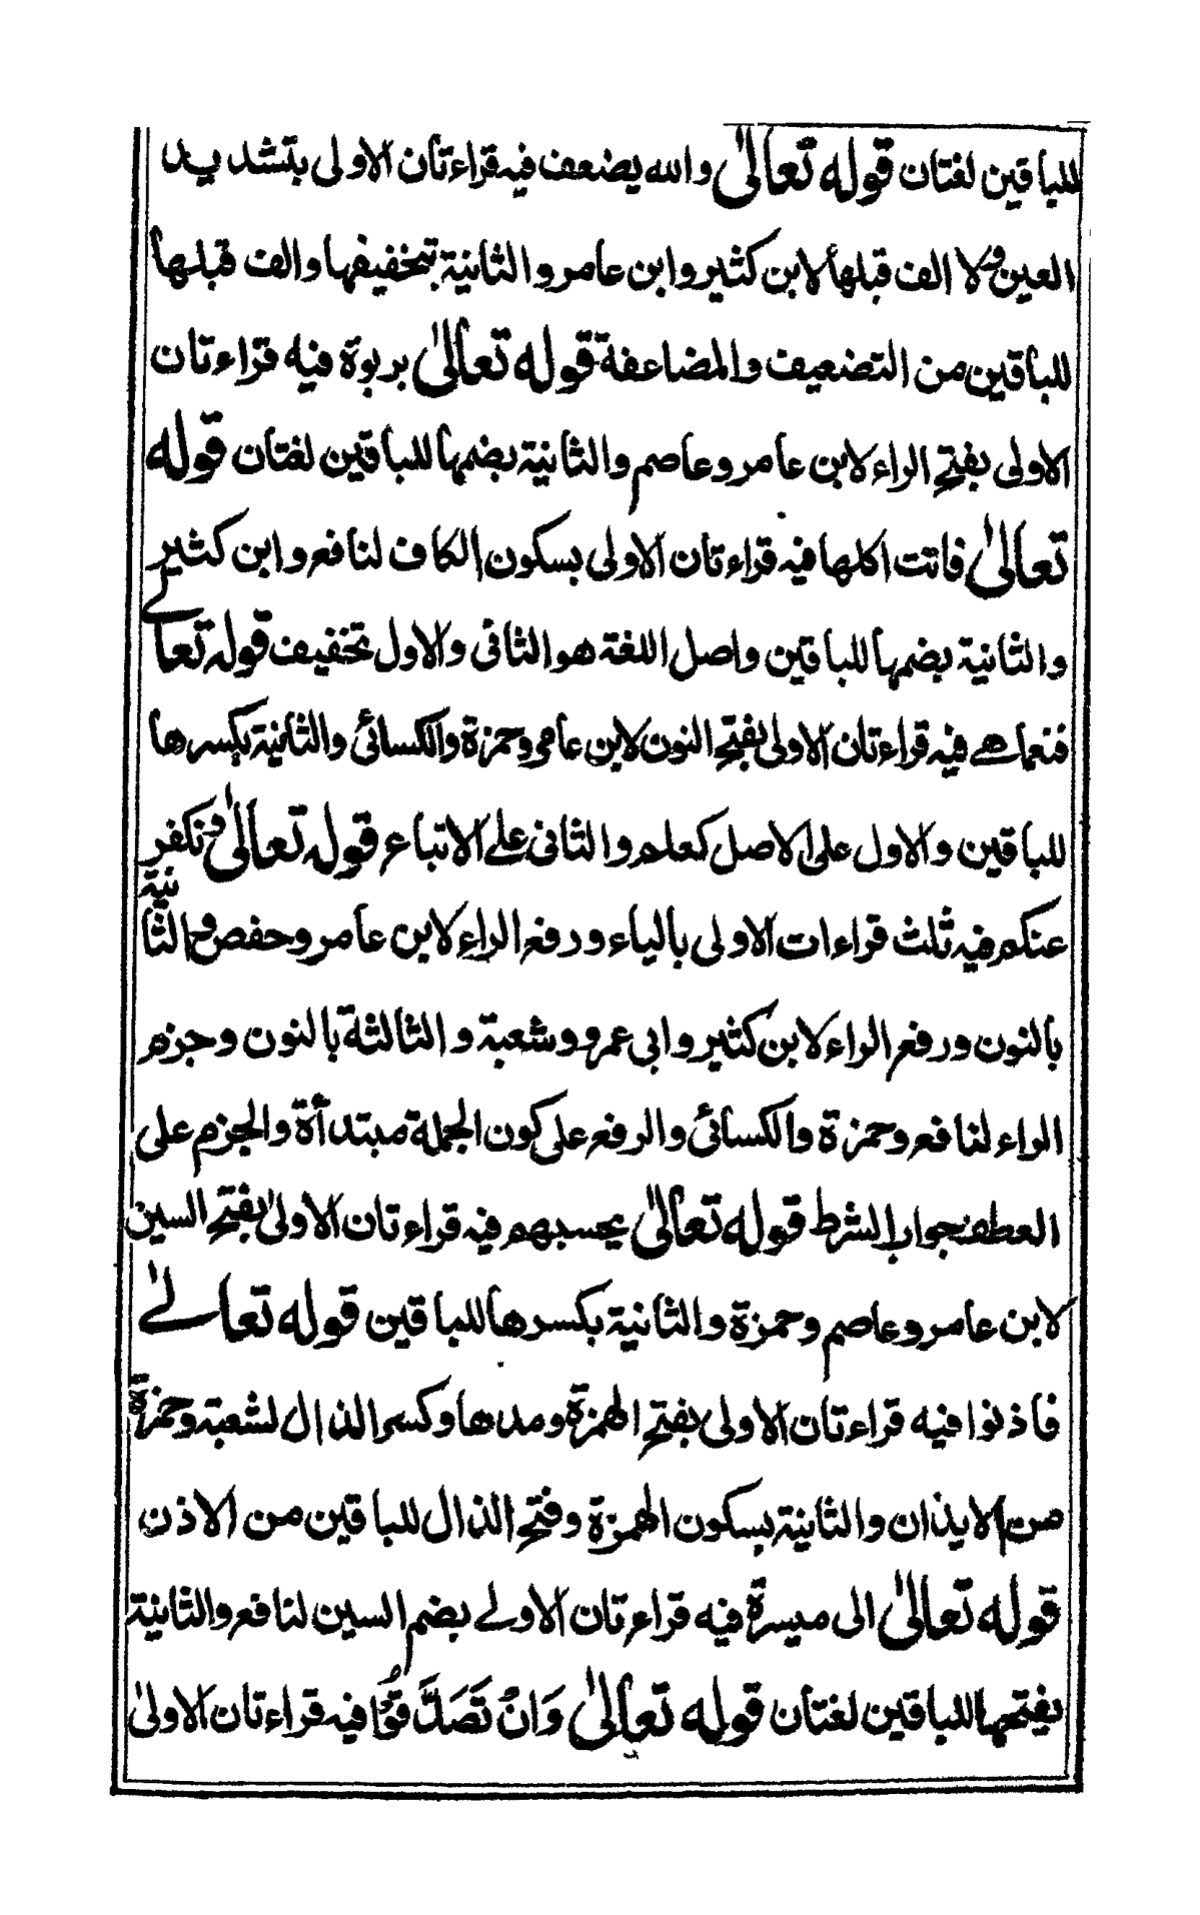 للباقين لغتان قوله تعالىٰ والله يضعف فيه قراءتان الاولى بتشديد
العين ولا الف قبلها لابن كثير وابن عامر والثانية بتخفيفها والف قبلها
للباقين من التضعيف والمضاعفة قوله تعالىٰ بربوة فيه قراءتان
الاولى بفتح الراء لابن عامر وعاصم والثانية بضمها للباقين لغتان قوله
تعالىٰ فاتت اكلها فيه قراءتان الاولى بسكون الكاف لنافع وابن كثير
والثانية بضمها للباقين واصل اللغة هو الثانى والاول تخفيف قوله تعالے
فنعماهے فيه قراءتان الاولى بفتح النون لابن عامر وحمزة والكسائى والثانية بكسرها
للباقين والاول على الاصل كعلم والثانى علے الاتباع قوله تعالىٰ ونكفر
عنكم فيه ثلث قراءات الاولى بالياء ورفع الراء لابن عامر وحفص والثانية
بالنون ورفع الراء لابن كثير وابى عمرو وشعبة والثالثة بالنون وجزم
الراء لنافع وحمزة والكسائى والرفع على كون الجملة مبتدأة والجزم على
العطف بجواب الشرط قوله تعالىٰ يحسبهم فيه قراءتان الاولىٰ بفتح السين
لابن عامر وعاصم وحمزة والثانية بكسرها للباقين قوله تعالےٰ
فاذنوا فيه قراءتان الاولى بفتح الهمزة ومدها وكسر الذال لشعبة وحمزة
من الايذان والثانية بسكون الهمزة وفتح الذال للباقين من الاذن
قوله تعالىٰ الى ميسرة فيه قراءتان الاولے بضم السين لنافع والثانية
بفتحها للباقين لغتان قوله تعالىٰ وَانْ تَصَدَّقُوْا فيه قراءتان الاولىٰ